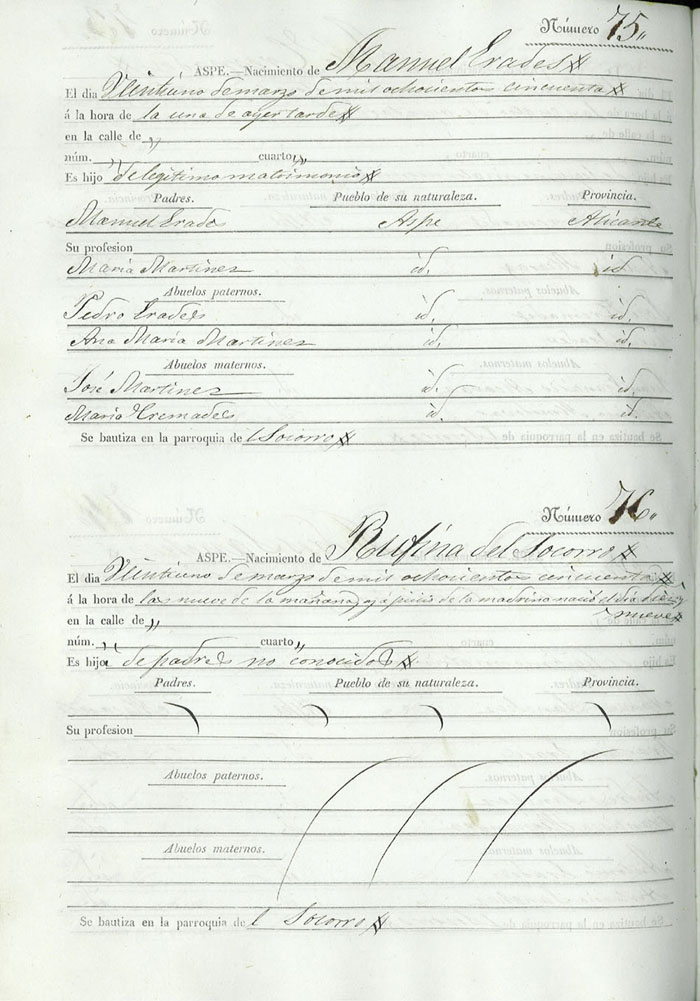 Número 75,,
ASPE.—Nacimiento de Manuel Erades
El dia Veintiuno de marzo de mil ochocientos cincuenta
á la hora de la una de ayer tarde
en la calle de ,,
núm. ,, cuarto ,,
Es hijo de legitimo matrimonio
Padres. Pueblo de su naturaleza. Provincia.
Manuel Erades Aspe Alicante
Su profesion
Maria Martinez id. id.
Abuelos paternos.
Pedro Erades id. id.
Ana Maria Martinez id. id.
Abuelos maternos.
José Martinez id. id.
Maria Cremades id. id.
Se bautiza en la parroquia de l Socorro
Número 76,,
ASPE.—Nacimiento de Rufina del Socorro
El dia Veintiuno de marzo de mil ochocientos cincuenta
á la hora de las nueve de la mañana, y á juicio de la madrina nació el dia diez y
en la calle de ,, nueve
núm. ,, cuarto ,,
Es hija de padres no conocidos
Padres. Pueblo de su naturaleza. Provincia.
Su profesion
Abuelos paternos.
Abuelos maternos.
Se bautiza en la parroquia de l Socorro